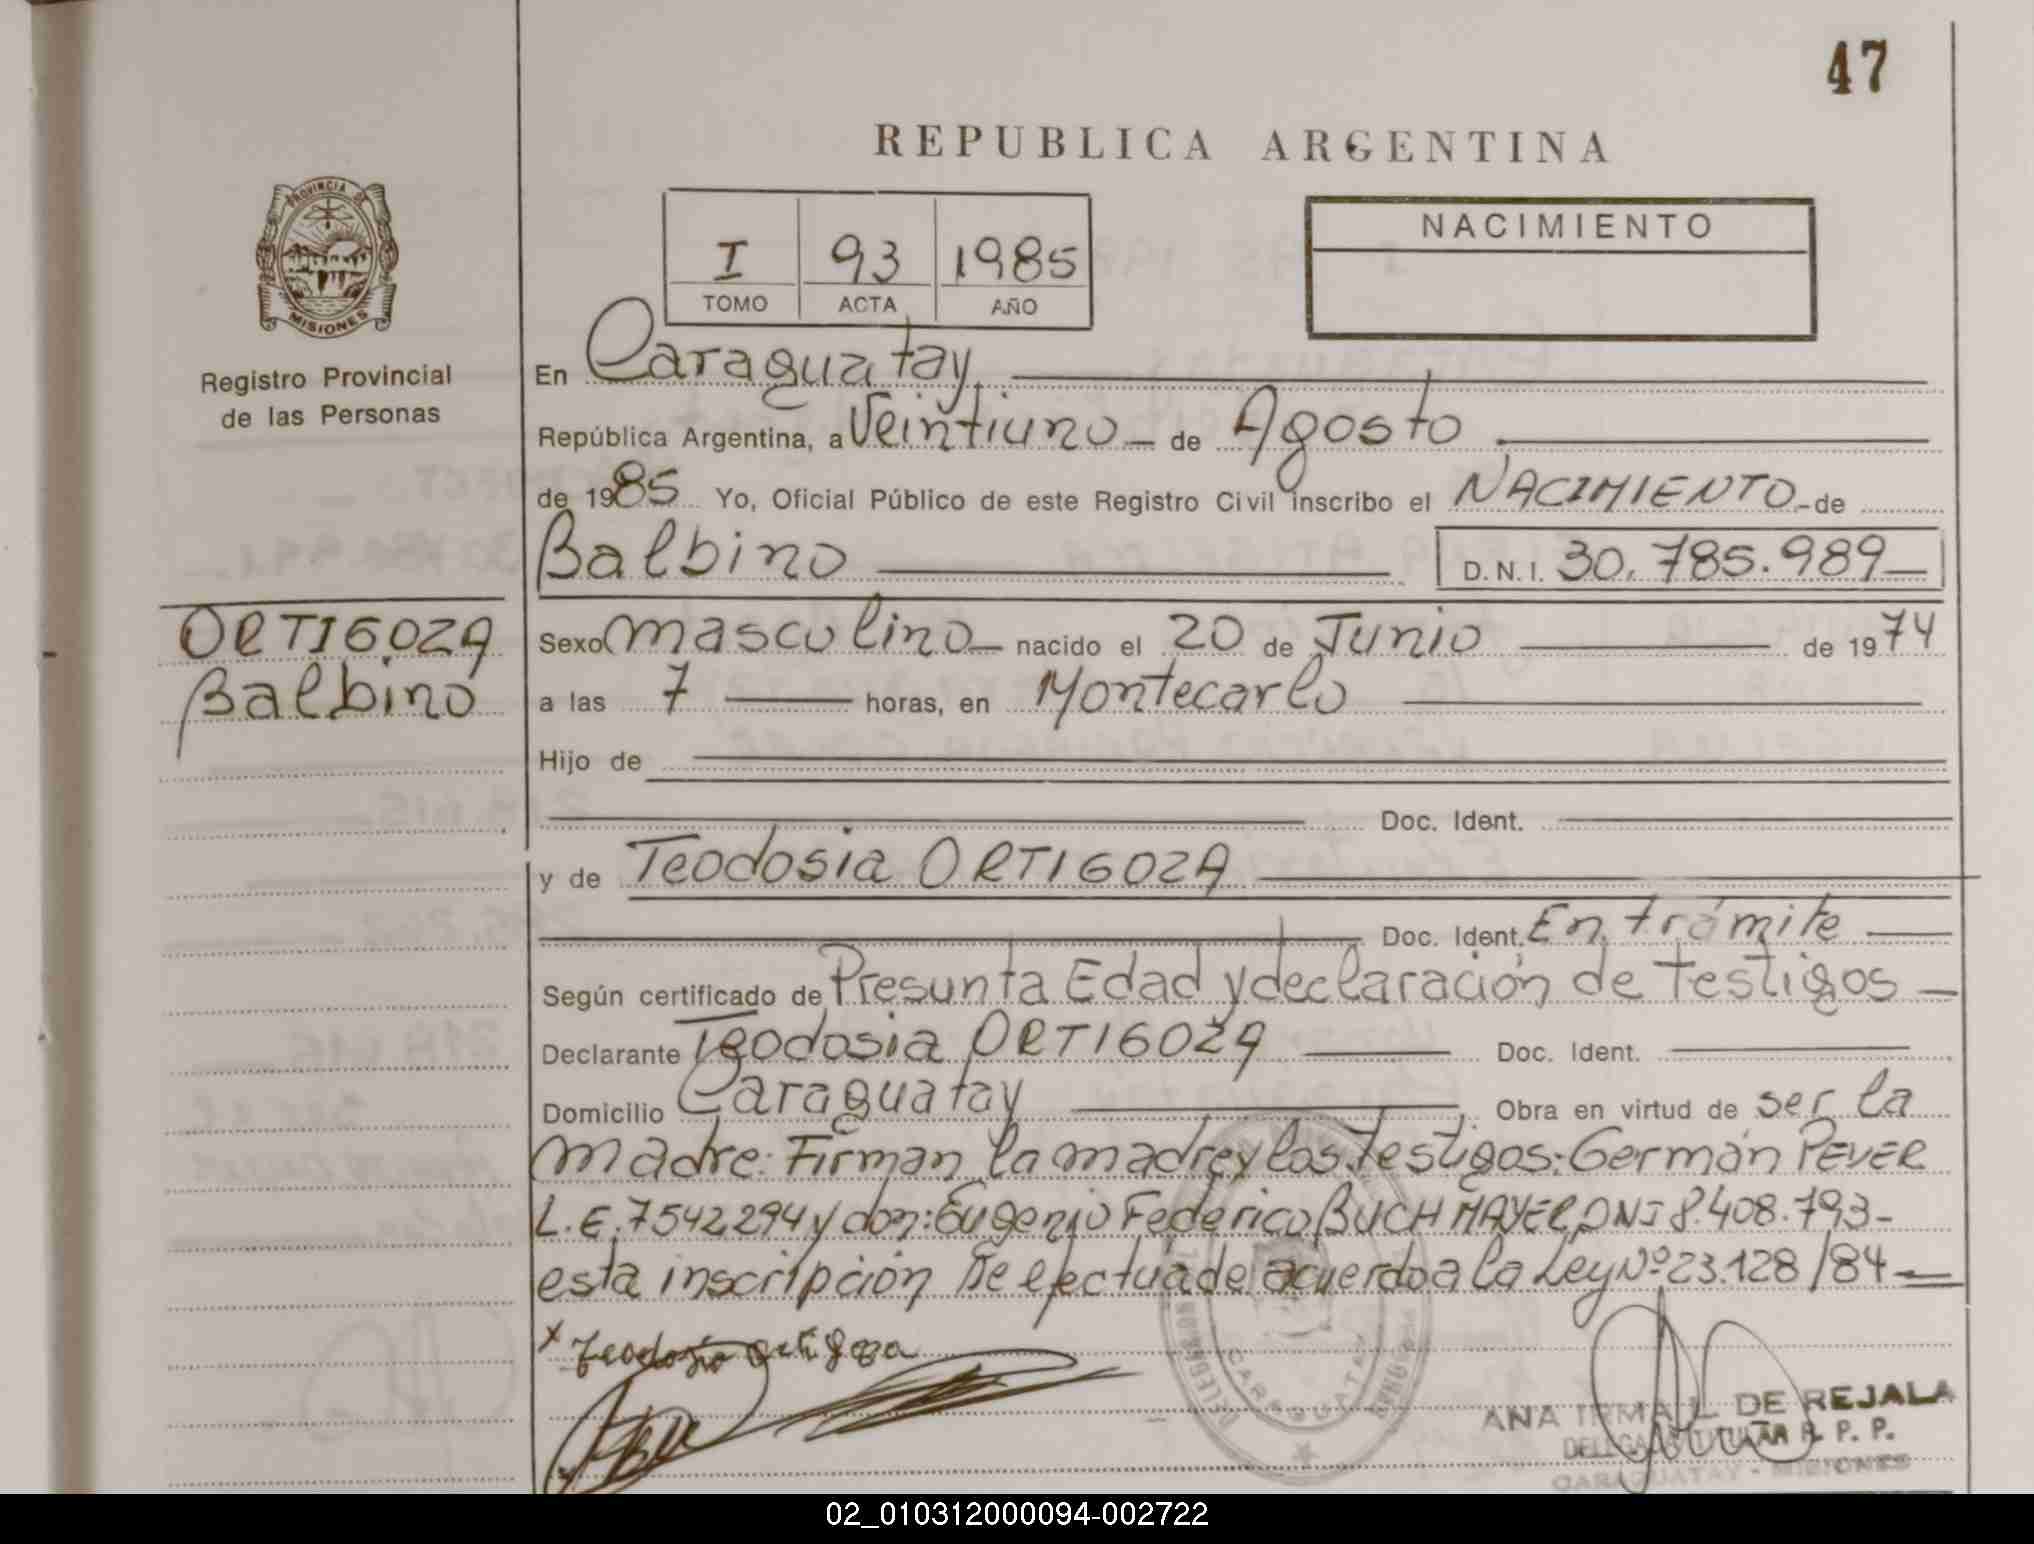 47
REPUBLICA ARGENTINA
PROVINCIA DE
MISIONES
Registro Provincial
de las Personas
I 93 1985
TOMO ACTA AÑO
NACIMIENTO
En Caraguatay
República Argentina, a Veintiuno de Agosto
de 1985 Yo, Oficial Público de este Registro Civil inscribo el NACIMIENTO de
Balbino D.N.I. 30.785.989
ORTIGOZA
Balbino
Sexo masculino nacido el 20 de Junio de 1974
a las 7 horas, en Montecarlo
Hijo de
Doc. Ident.
y de Teodosia ORTIGOZA
Doc. Ident. En trámite
Según certificado de Presunta Edad y declaración de testigos
Declarante Teodosia ORTIGOZA Doc. Ident.
Domicilio Caraguatay Obra en virtud de ser la
madre: Firman la madre y los testigos: Germán PEVER
L.E. 7542294 y don: Eugenio Federico BUCHMAYER DNI 8.408.793-
esta inscripción se efectúa de acuerdo a la Ley Nº 23.128/84
x Teodosia ortigoza
CARAGUATAY
ANA IRMA L. DE REJALA
DELEGADA TITULAR R. P. P.
CARAGUATAY - MISIONES
02_010312000094-002722